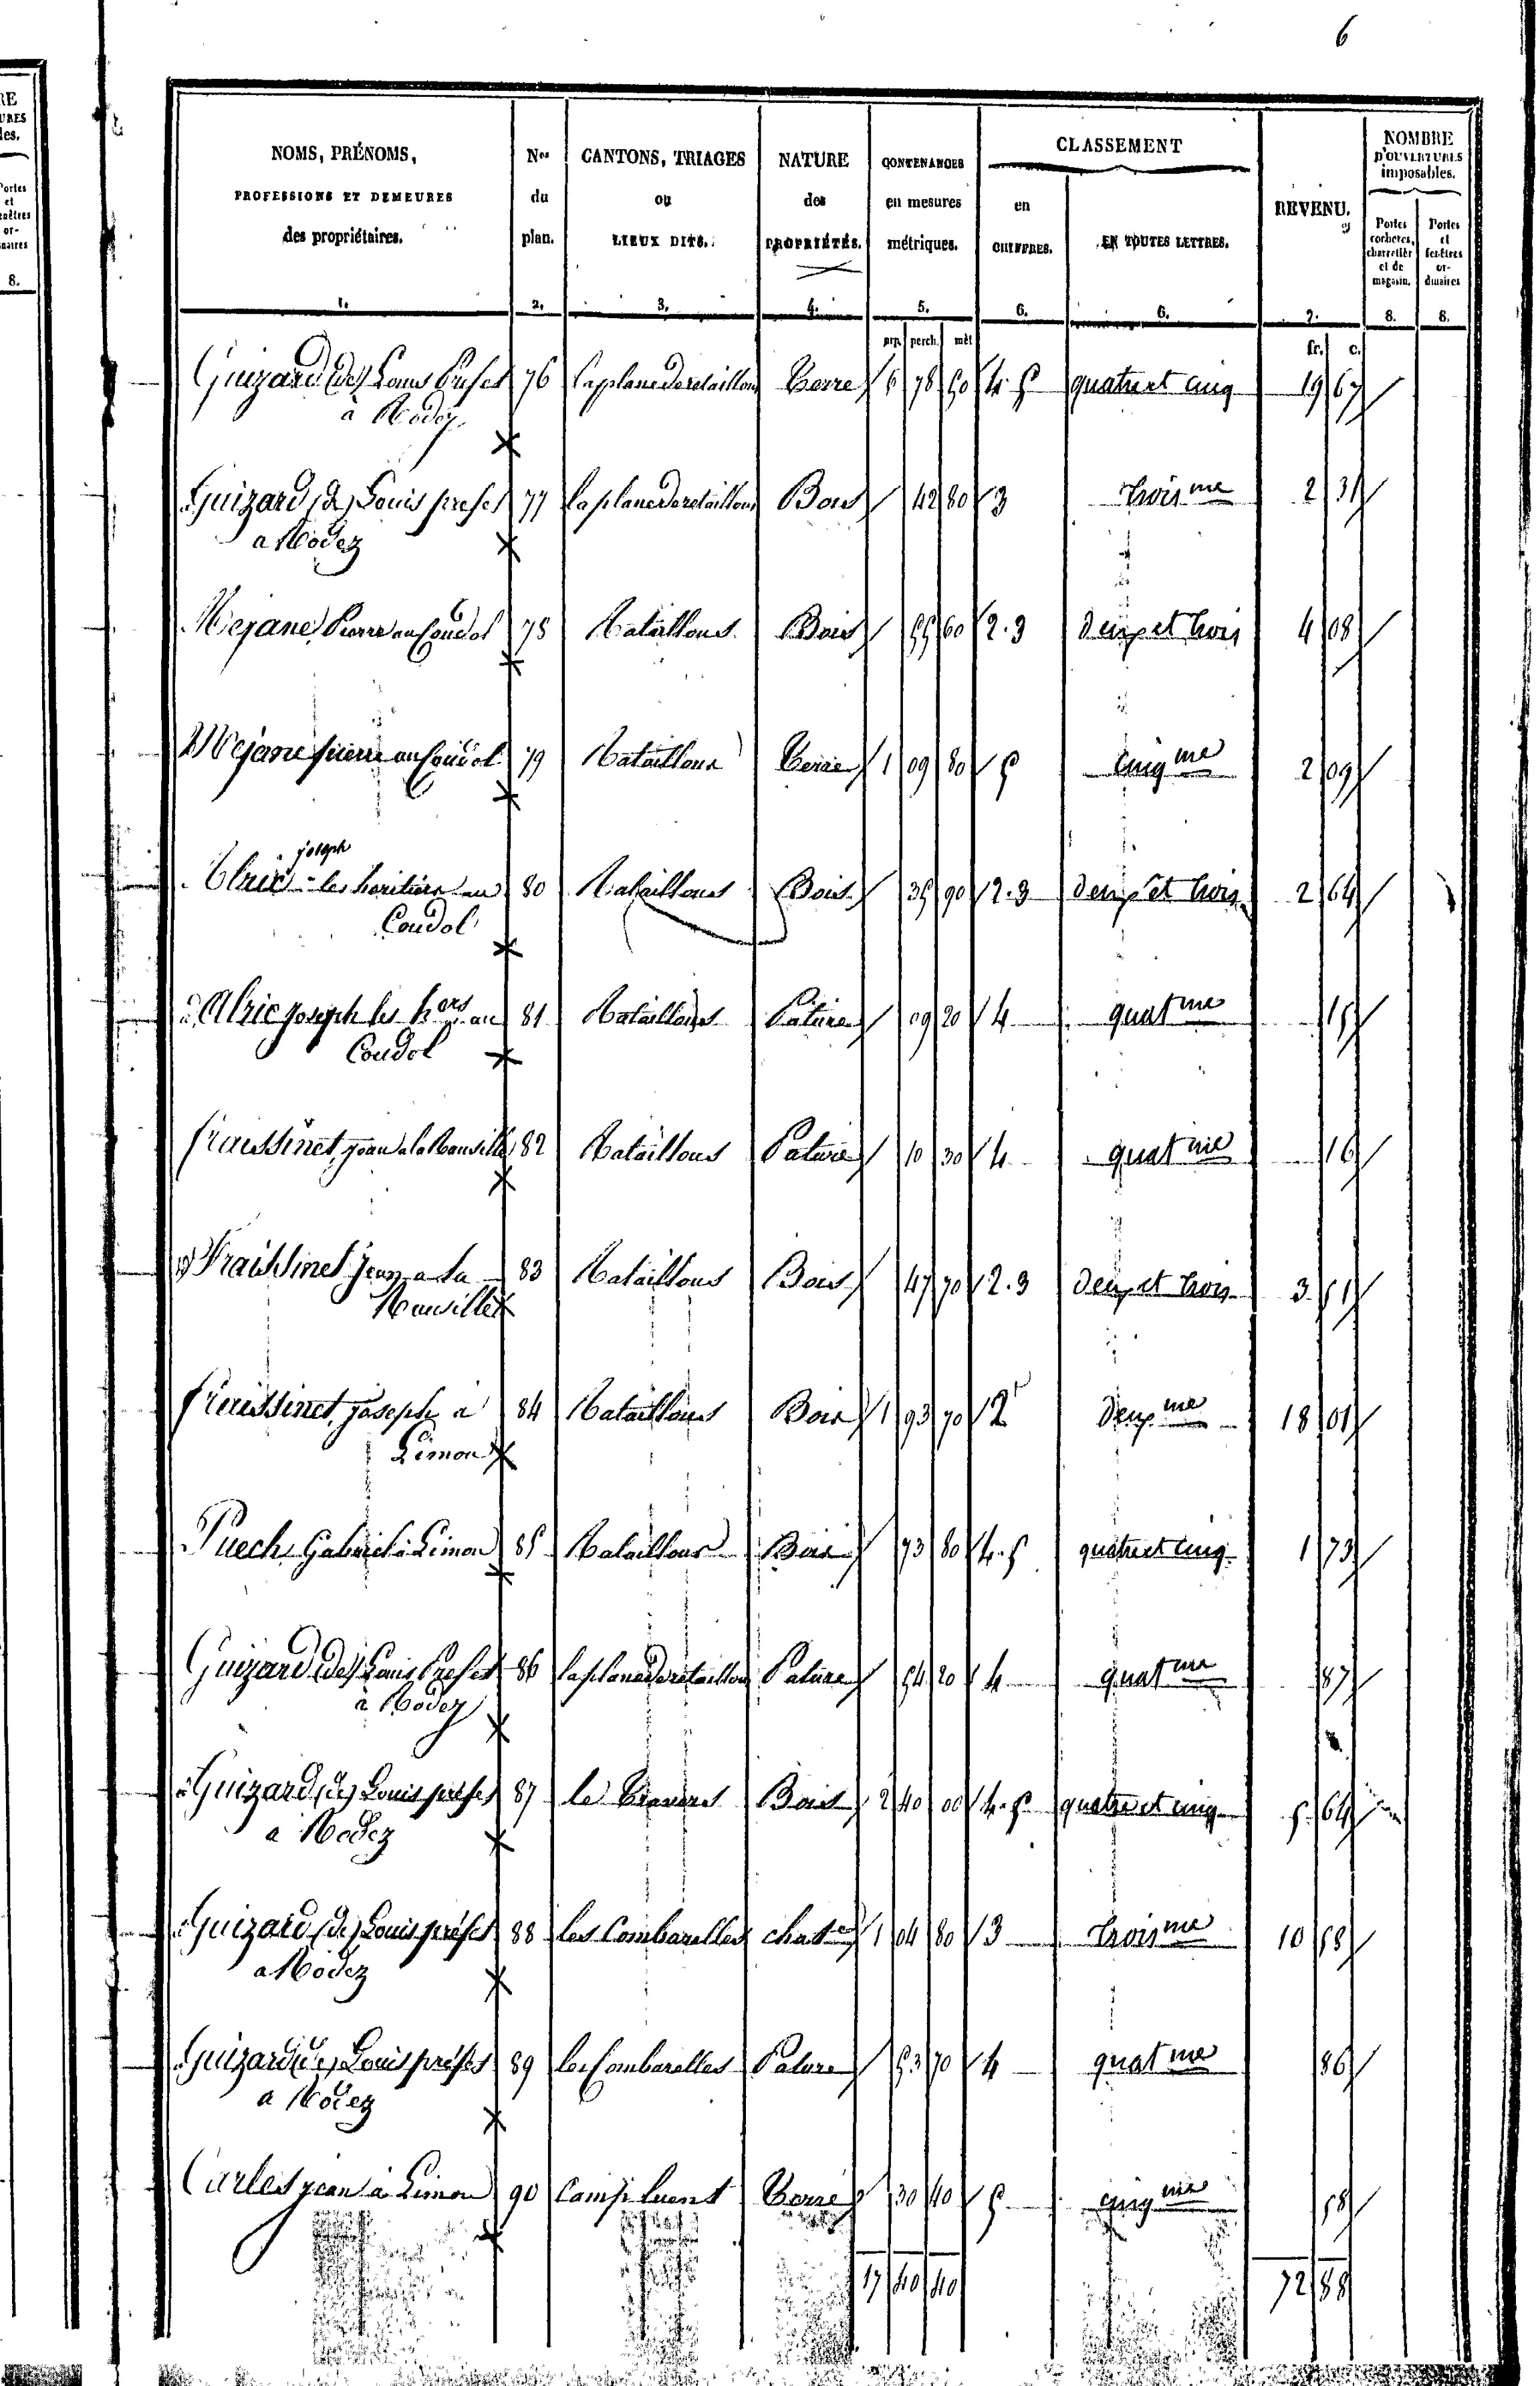 6
NOMS, PRÉNOMS, PROFESSIONS ET DEMEURES des propriétaires. 1.
Nos du plan. 2.
CANTONS, TRIAGES ou LIEUX DITS. 3.
NATURE des PROPRIÉTÉS. 4.
CONTENANCES en mesures métriques. 5.
CLASSEMENT
en CHIFFRES. 6.
EN TOUTES LETTRES. 6.
REVENU. 7.
NOMBRE D'OUVERTURES imposables.
Portes cochères, charretières et de magasin. 8.
Portes et fenêtres ordinaires 8.
arp. perch. mèt
fr. c.
Guizard (de) Louis Prefet 76 la plane de rataillous Terre 6 78 50 4.5 quatre et cinq 19 67
à Rodez
Guizard (de) Louis prefet 77 la plane de rataillous Bois 42 80 3 trois me 2 31
a Rodez
Mejane Pierre au Coudol 78 Rataillous Bois 55 60 2.3 deux et trois 4 08
Mejane pierre au Coudol 79 Rataillous Terre 1 09 80 5 cinq me 2 09
joseph
Alric les heritiers au 80 Rataillous Bois 35 90 2.3 deux et trois 2 64
Coudol
Alric joseph les hers au 81 Rataillous Pature 09 20 4 quat me 15
Coudol
fraissinet, jean a la 82 Rataillous Pature 10 30 4 quat me 16
Fraissinet jean a la 83 Rataillous Bois 47 70 2.3 deux et trois 3 51
fraissinet, joseph a 84 Rataillous Bois 1 93 70 2 deux me 18 01
Limon
Puech Gabriel à Limon 85 Rataillous Bois 73 80 4.5 quatre et cinq 1 73
Guizard (de) Louis Prefet 86 la plane de rataillous Pature 54 20 4 quat me 87
à Rodez
Guizard (de) Louis prefet 87 le Travers Bois 2 40 00 4.5 quatre et cinq 5 64
a Rodez
Guizard (de) Louis préfet 88 les Combarelles 1 04 80 3 trois me 10 58
a Rodez
Guizard (de) Louis préfet 89 les Combarelles Pature 53 70 4 quat me 86
a Rodez
Carles jean à Limon 90 Terre 30 40 5 cinq me 58
17 40 40 72 88